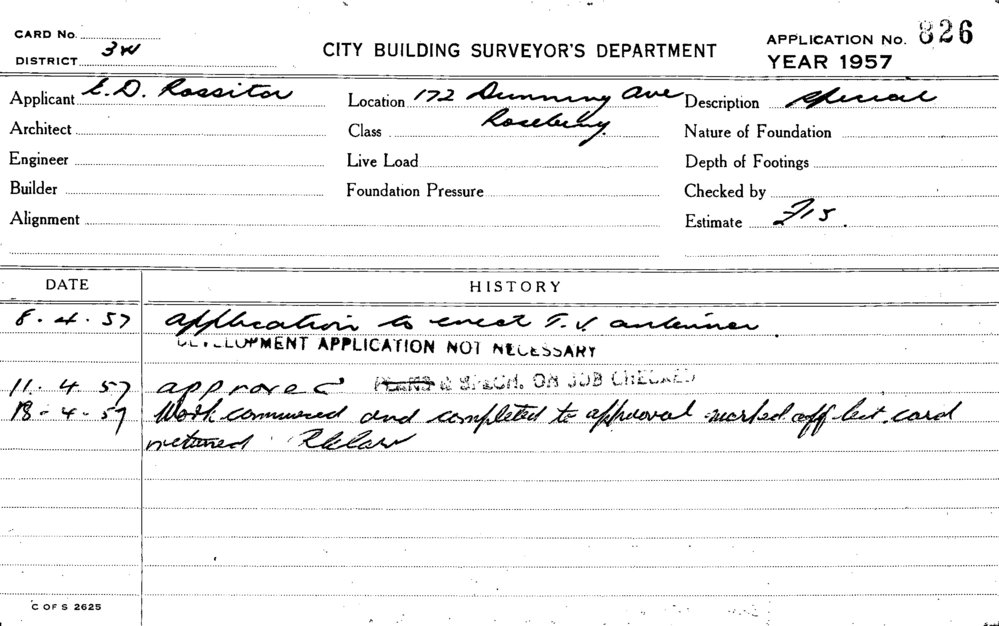 CARD No.
DISTRICT 3W
CITY BUILDING SURVEYOR'S DEPARTMENT
APPLICATION No. 826
YEAR 1957
Applicant E. D. Rossitor
Location 172 Dunning Ave
Rosebery.
Description Special
Architect
Class
Nature of Foundation
Engineer
Live Load
Depth of Footings
Builder
Foundation Pressure
Checked by
Alignment
Estimate £15.
DATE
HISTORY
8.4.57 application to erect T.V. antenner
DEVELOPMENT APPLICATION NOT NECESSARY
11.4.57 approved PLANS & SPECN. ON JOB CHECKED
18-4-57 Work commenced and completed to approval marked off list. card
returned
C OF S 2625